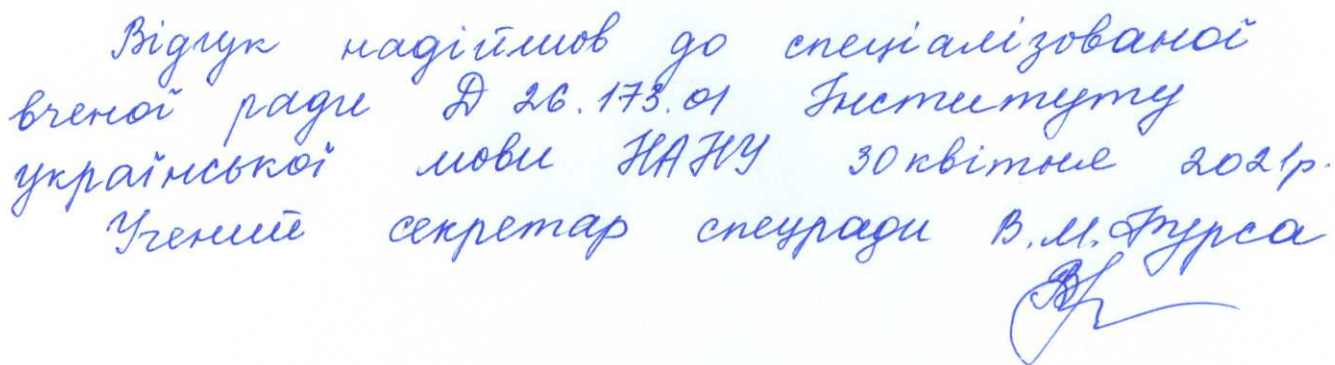 Відгук надійшов до спеціалізованої
вченої ради Д 26.173.01 Інституту
української мови НАНУ 30 квітня 2021р.
Учений секретар спецради В.М. Фурса